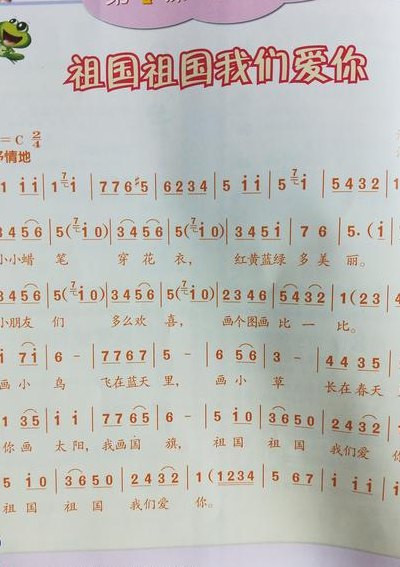 祖国祖国我们爱你
= C 2/4
情地
1 i i | 1 i | 7 7 6 #5 | 6 2 3 4 | 5 i i | 5 i | 5 4 3 2 | 1
3 4 5 6 | 5 (i 0) | 3 4 5 6 | 5 (i 0) | 3 4 5 6 | 5 (i 0) | 3 4 5 i | 7 6 | 5. (i
小小蜡 笔 穿 花 衣, 红黄蓝绿 多 美 丽。
3 4 5 6 | 5 (i 0) | 3 4 5 6 | 5 (i 0) | 2 3 4 6 | 5 4 3 2 | 1 (2 3
小朋友 们 多么欢 喜, 画个图画 比 一 比。
i 7 i | 6 - | 7 7 6 7 | 5 - | 6 5 6 | 3 - | 4 4 3 5
画 小 鸟 飞在蓝天 里, 画 小 草 长在春天
3 5 | i i | 7 7 6 5 | 6 - | 5 i 0 | 3 6 5 0 | 2 4 3 2
你画 太阳, 我画国 旗, 祖国 祖国 我们爱 你
5 i 0 | 3 6 5 0 | 2 4 3 2 | 1 (1 2 3 4 | 5 6 7 | i i i | i
祖 国 祖 国 我们爱 你。